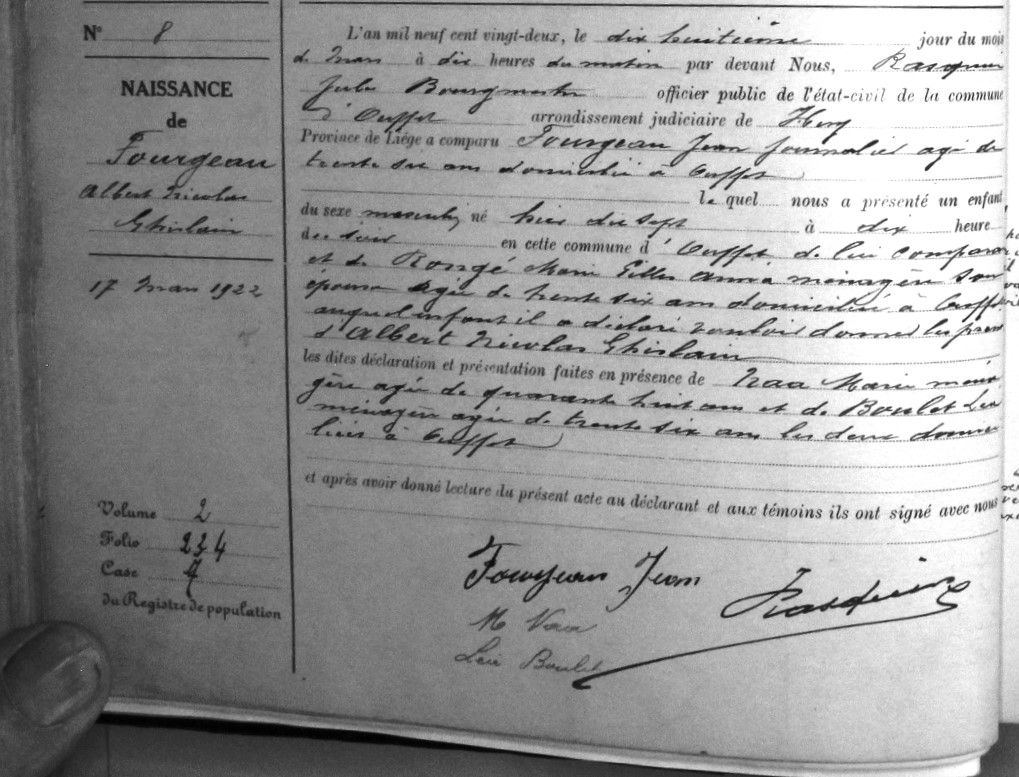 N° 8
NAISSANCE
de
Fourgeau
Albert Nicolas
Ghislain
17 Mars 1922
Volume 2
Folio 234
Case 7
du Registre de population
L'an mil neuf cent vingt-deux, le dix huitième jour du mois
de Mars à dix heures du matin par devant Nous, Rasquin
Jules Bourgmestre officier public de l'état-civil de la commune
d'Ouffet arrondissement judiciaire de Huy
Province de Liége a comparu Fourgeau Jean journalier agé de
trente six ans domicilié à Ouffet
lequel nous a présenté un enfant
du sexe masculin né hier dix sept à dix heure
du soir en cette commune d'Ouffet de lui comparant
et de Rongé Marie Gilles Annia ménagère son
épouse agée de trente six ans domiciliée à Ouffet
auquel enfant il a déclaré vouloir donner les prénoms
d'Albert Nicolas Ghislain
les dites déclaration et présentation faites en présence de Naa Marie ména
gère agée de quarante huit ans et de Boulet Léa
ménagère agée de trente six ans les deux domici
liées à Ouffet
et après avoir donné lecture du présent acte au déclarant et aux témoins ils ont signé avec nous
Fourgeau Jean
Rasquin
M Naa
Léa Boulet